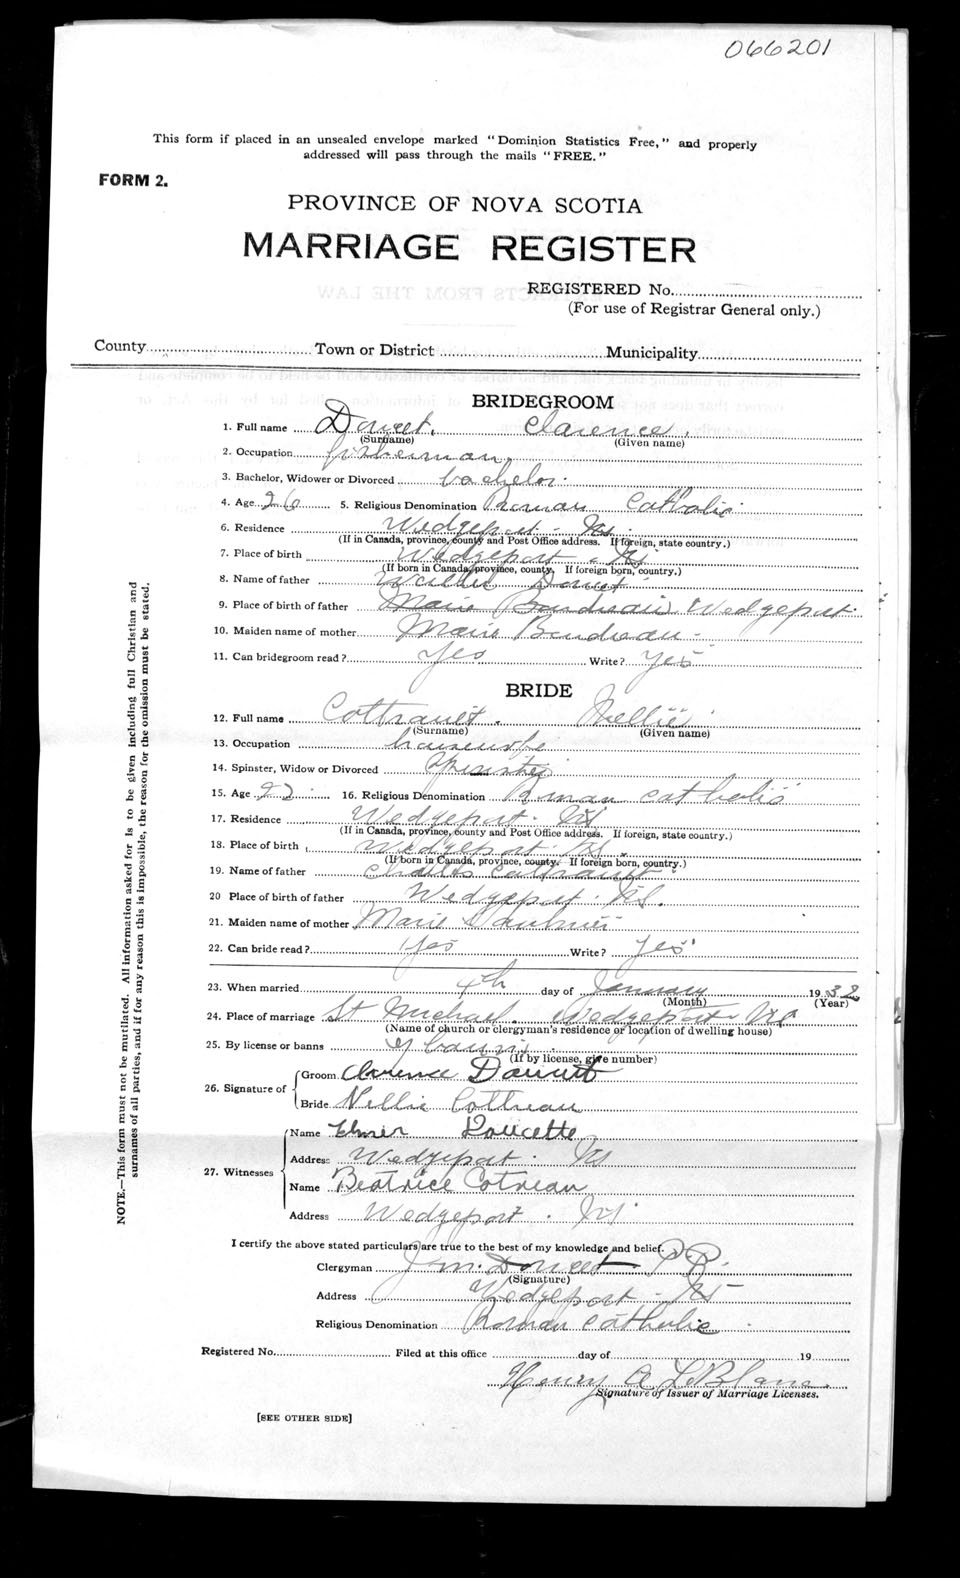 066201
This form if placed in an unsealed envelope marked "Dominion Statistics Free," and properly
addressed will pass through the mails "FREE."
FORM 2.
PROVINCE OF NOVA SCOTIA
MARRIAGE REGISTER
REGISTERED No.
(For use of Registrar General only.)
County Town or District Municipality
BRIDEGROOM
1. Full name Doucet, Clarence,
(Surname) (Given name)
2. Occupation fisherman,
3. Bachelor, Widower or Divorced bachelor
4. Age 26 5. Religious Denomination Roman Catholic
6. Residence Wedgeport - NS.
(If in Canada, province, county and Post Office address. If foreign, state country.)
7. Place of birth Wedgeport - NS
(If born in Canada, province, county. If foreign born, country.)
8. Name of father Doucet
9. Place of birth of father Marie Boudreau Wedgeport.
10. Maiden name of mother Marie Boudreau -
11. Can bridegroom read? Yes Write? Yes
BRIDE
12. Full name Cottrault. Nellie
(Surname) (Given name)
13. Occupation housewife
14. Spinster, Widow or Divorced Spinster
15. Age 22 16. Religious Denomination Roman Catholic
17. Residence Wedgeport. NS
(If in Canada, province, county and Post Office address. If foreign, state country.)
18. Place of birth Wedgeport. NS.
(If born in Canada, province, county. If foreign born, country.)
19. Name of father Charles Cottrault.
20 Place of birth of father Wedgeport. NS.
21. Maiden name of mother Marie
22. Can bride read? Yes Write? Yes
23. When married 4th day of January 1932
(Month) (Year)
24. Place of marriage St Michael. Wedgeport NS
(Name of church or clergyman's residence or location of dwelling house)
25. By license or banns banns
(If by license, give number)
26. Signature of Groom Clarence Doucet
Bride Nellie Cottreau
27. Witnesses Name Elmer Doucette
Address Wedgeport. NS
Name Beatrice Cotreau
Address Wedgeport. NS.
I certify the above stated particulars are true to the best of my knowledge and belief.
Clergyman J. M. Doucet P.P.
(Signature)
Address Wedgeport - NS
Religious Denomination Roman Catholic
Registered No. Filed at this office day of 19
Henry A LeBlanc
Signature of Issuer of Marriage Licenses.
[SEE OTHER SIDE]
NOTE.—This form must not be mutilated. All information asked for is to be given including full Christian and
surnames of all parties, and if for any reason this is impossible, the reason for the omission must be stated.